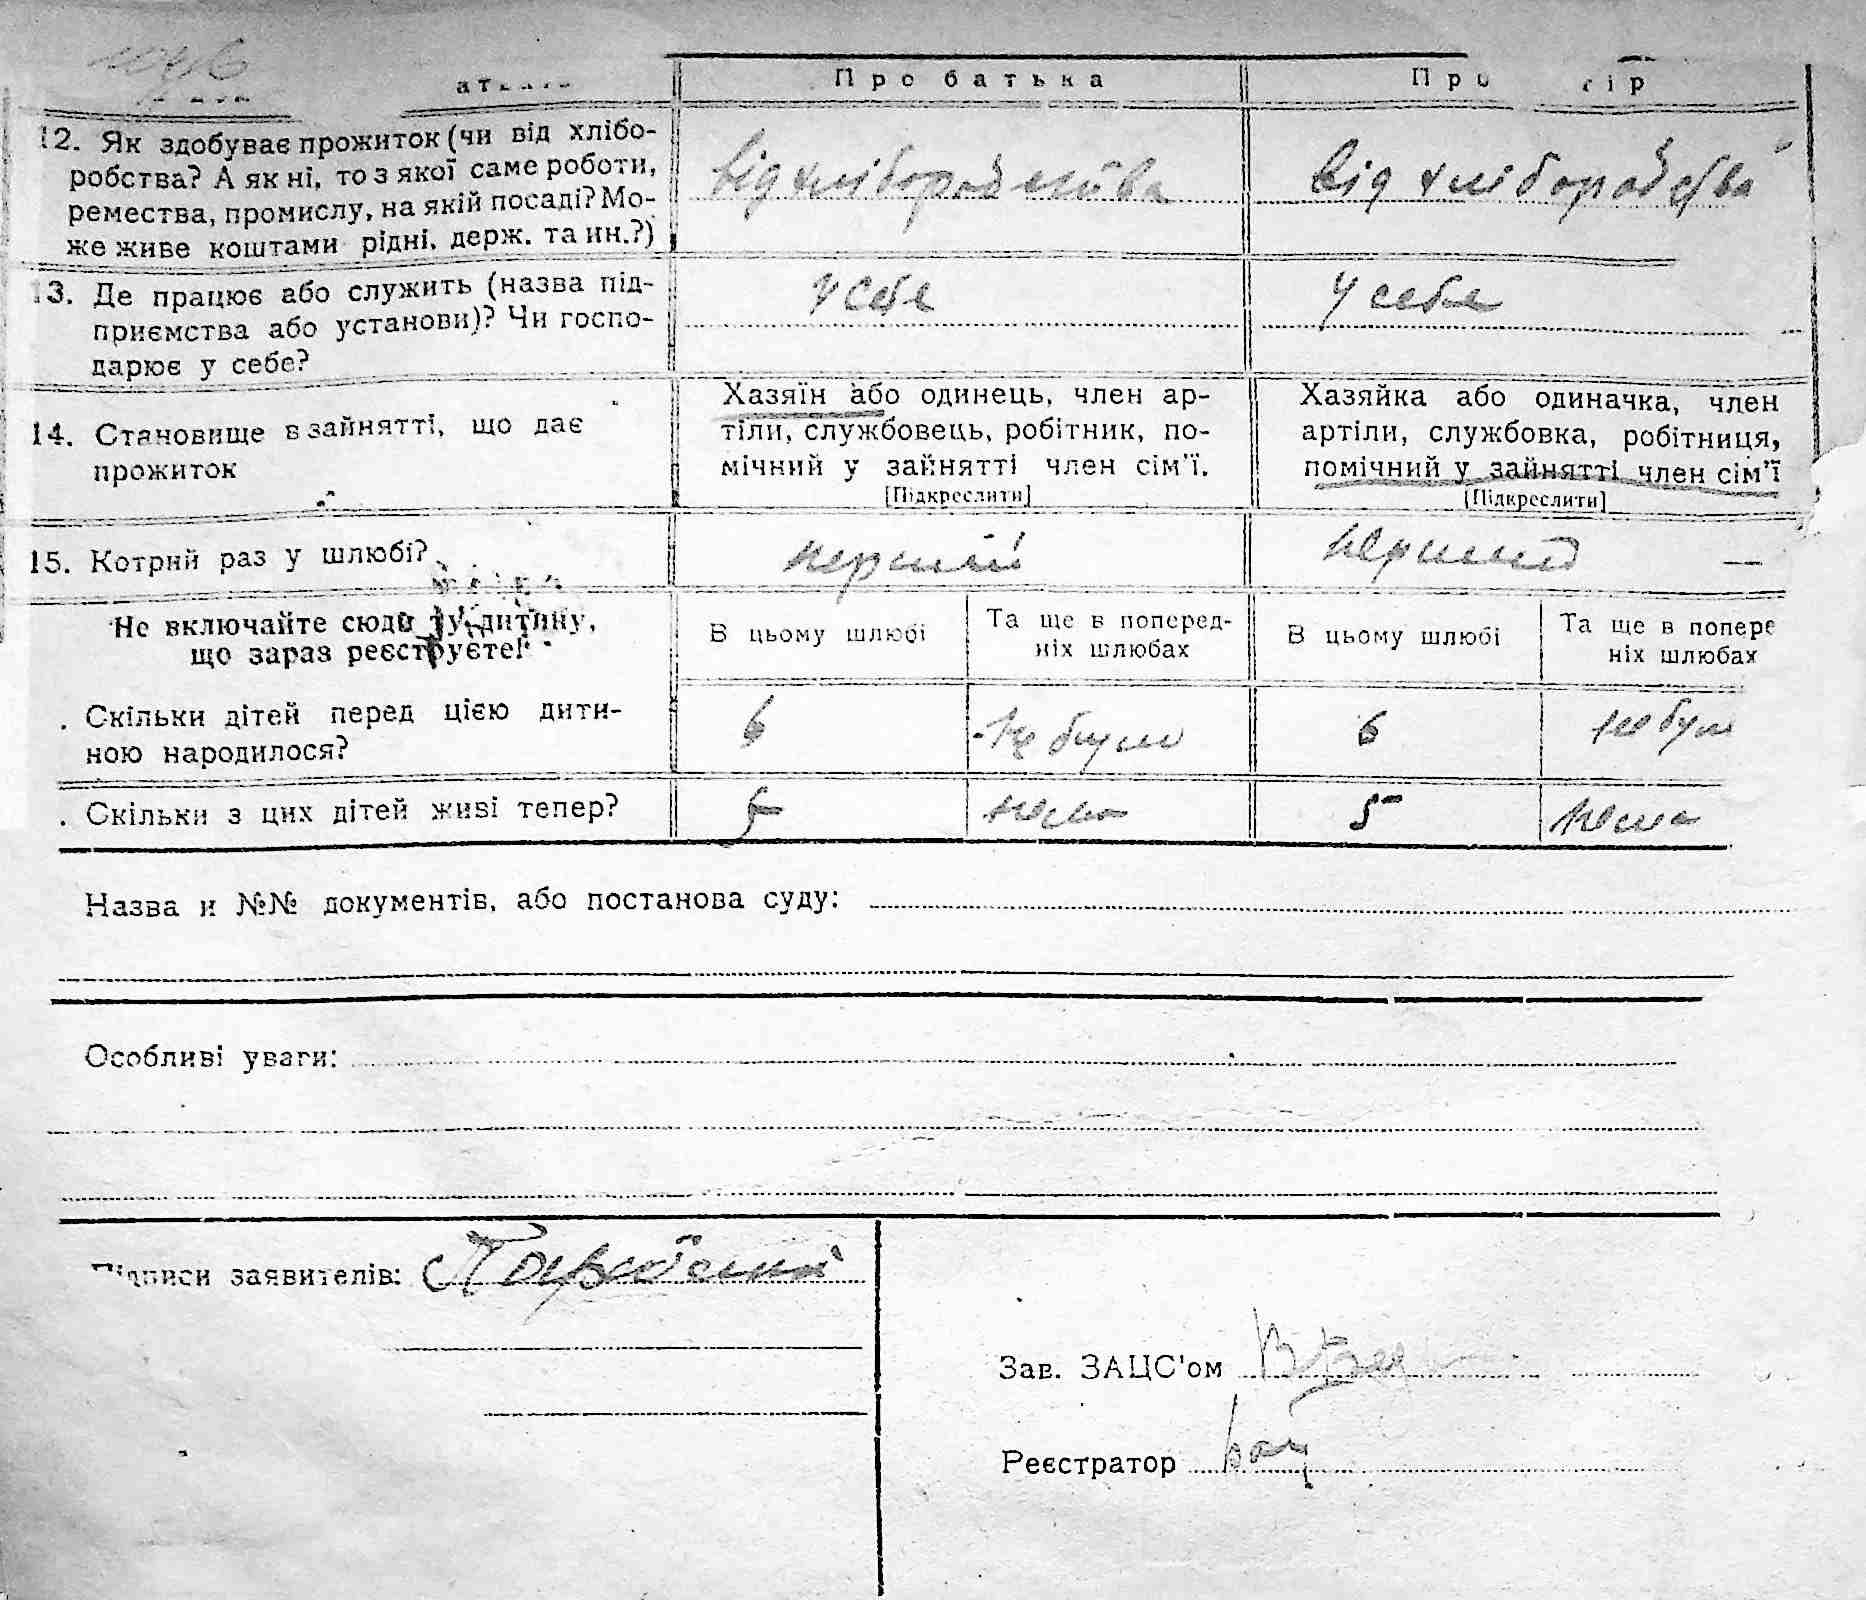 Про батька
12. Як здобуває прожиток (чи від хлібо-
робства? А як ні, то з якої саме роботи,
ремества, промислу, на якій посаді? Мо-
же живе коштами рідні, держ. та ин.?)
від хліборобства
від хліборобства
13. Де працює або служить (назва під-
приємства або установи)? Чи госпо-
дарює у себе?
у себе
у себе
14. Становище в зайнятті, що дає
прожиток
Хазяїн або одинець, член ар-
тіли, службовець, робітник, по-
мічний у зайнятті член сім'ї.
[Підкреслити]
Хазяйка або одиначка, член
артіли, службовка, робітниця,
помічний у зайнятті член сім'ї
[Підкреслити]
15. Котрий раз у шлюбі?
перший
перший —
Не включайте сюди ту дитину,
що зараз реєструєте!
В цьому шлюбі
Та ще в поперед-
ніх шлюбах
В цьому шлюбі
Та ще в попере
ніх шлюбах
. Скільки дітей перед цією дити-
ною народилося?
6
не були
6
не були
. Скільки з цих дітей живі тепер?
5
нема
5
нема
Назва и №№ документів, або постанова суду:
Особливі уваги:
Підписи заявителів:
Зав. ЗАЦС'ом
Реєстратор